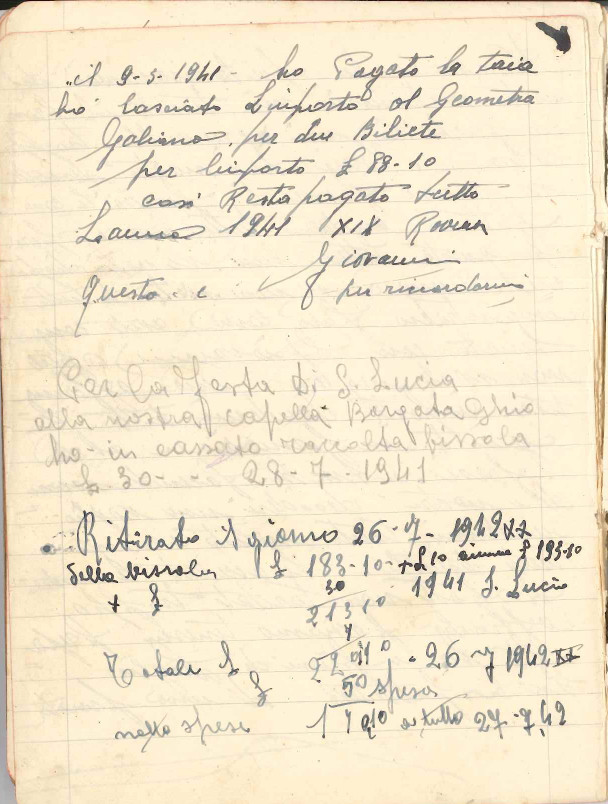 il 9-5-1941 - ho Pagato la taia
ho lasciato L'inporto al Geometra
Galiano per due Biliete
per l'inporto £ 88-10
casi Resta pagato tutto
L'anno 1941 XIX
Giovanni
Questo e per ricordarmi
Per la Festa Di S. Lucia
alla nostra capella Borgata Ghio
ho in cassato raccolta bissola
£ 30 - - 28-7-1941
Ritirato il giorno 26-7-1942 XX
della bissola £ 183-10- + £ 10 £ 193-10
+ £ 30 1941 S. Lucia
213 10
Totale £ 26-7 1942 XX
£ 50 spesa
netto spese 170,10 e tutto 27-7,42